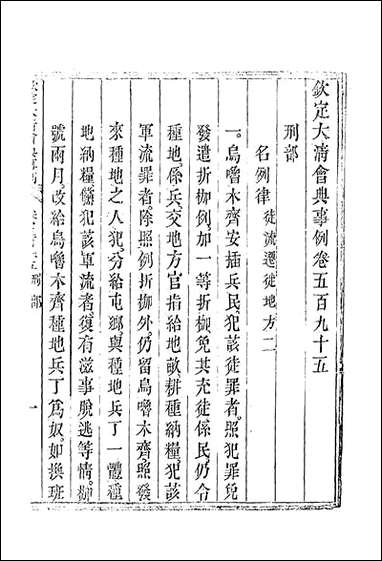 欽定大淸會典事例卷五百九十五
刑部
名例律 徒流遷徙地方二
一。烏嚕木齊安插兵民。犯該徒罪者。照犯罪免
發遣折枷例。加一等折枷。免其充徒。係民。仍令
種地。係兵。交地方官指給地畝。耕種納糧。犯該
軍流罪者。除照例折枷外。仍留烏嚕木齊。照發
來種地之人犯。分給屯鄉。與種地兵丁一體種
地納糧。儻犯該軍流者。復有滋事脫逃等情。枷
號兩月。改給烏嚕木齊種地兵丁爲奴。如換班
刑部
一